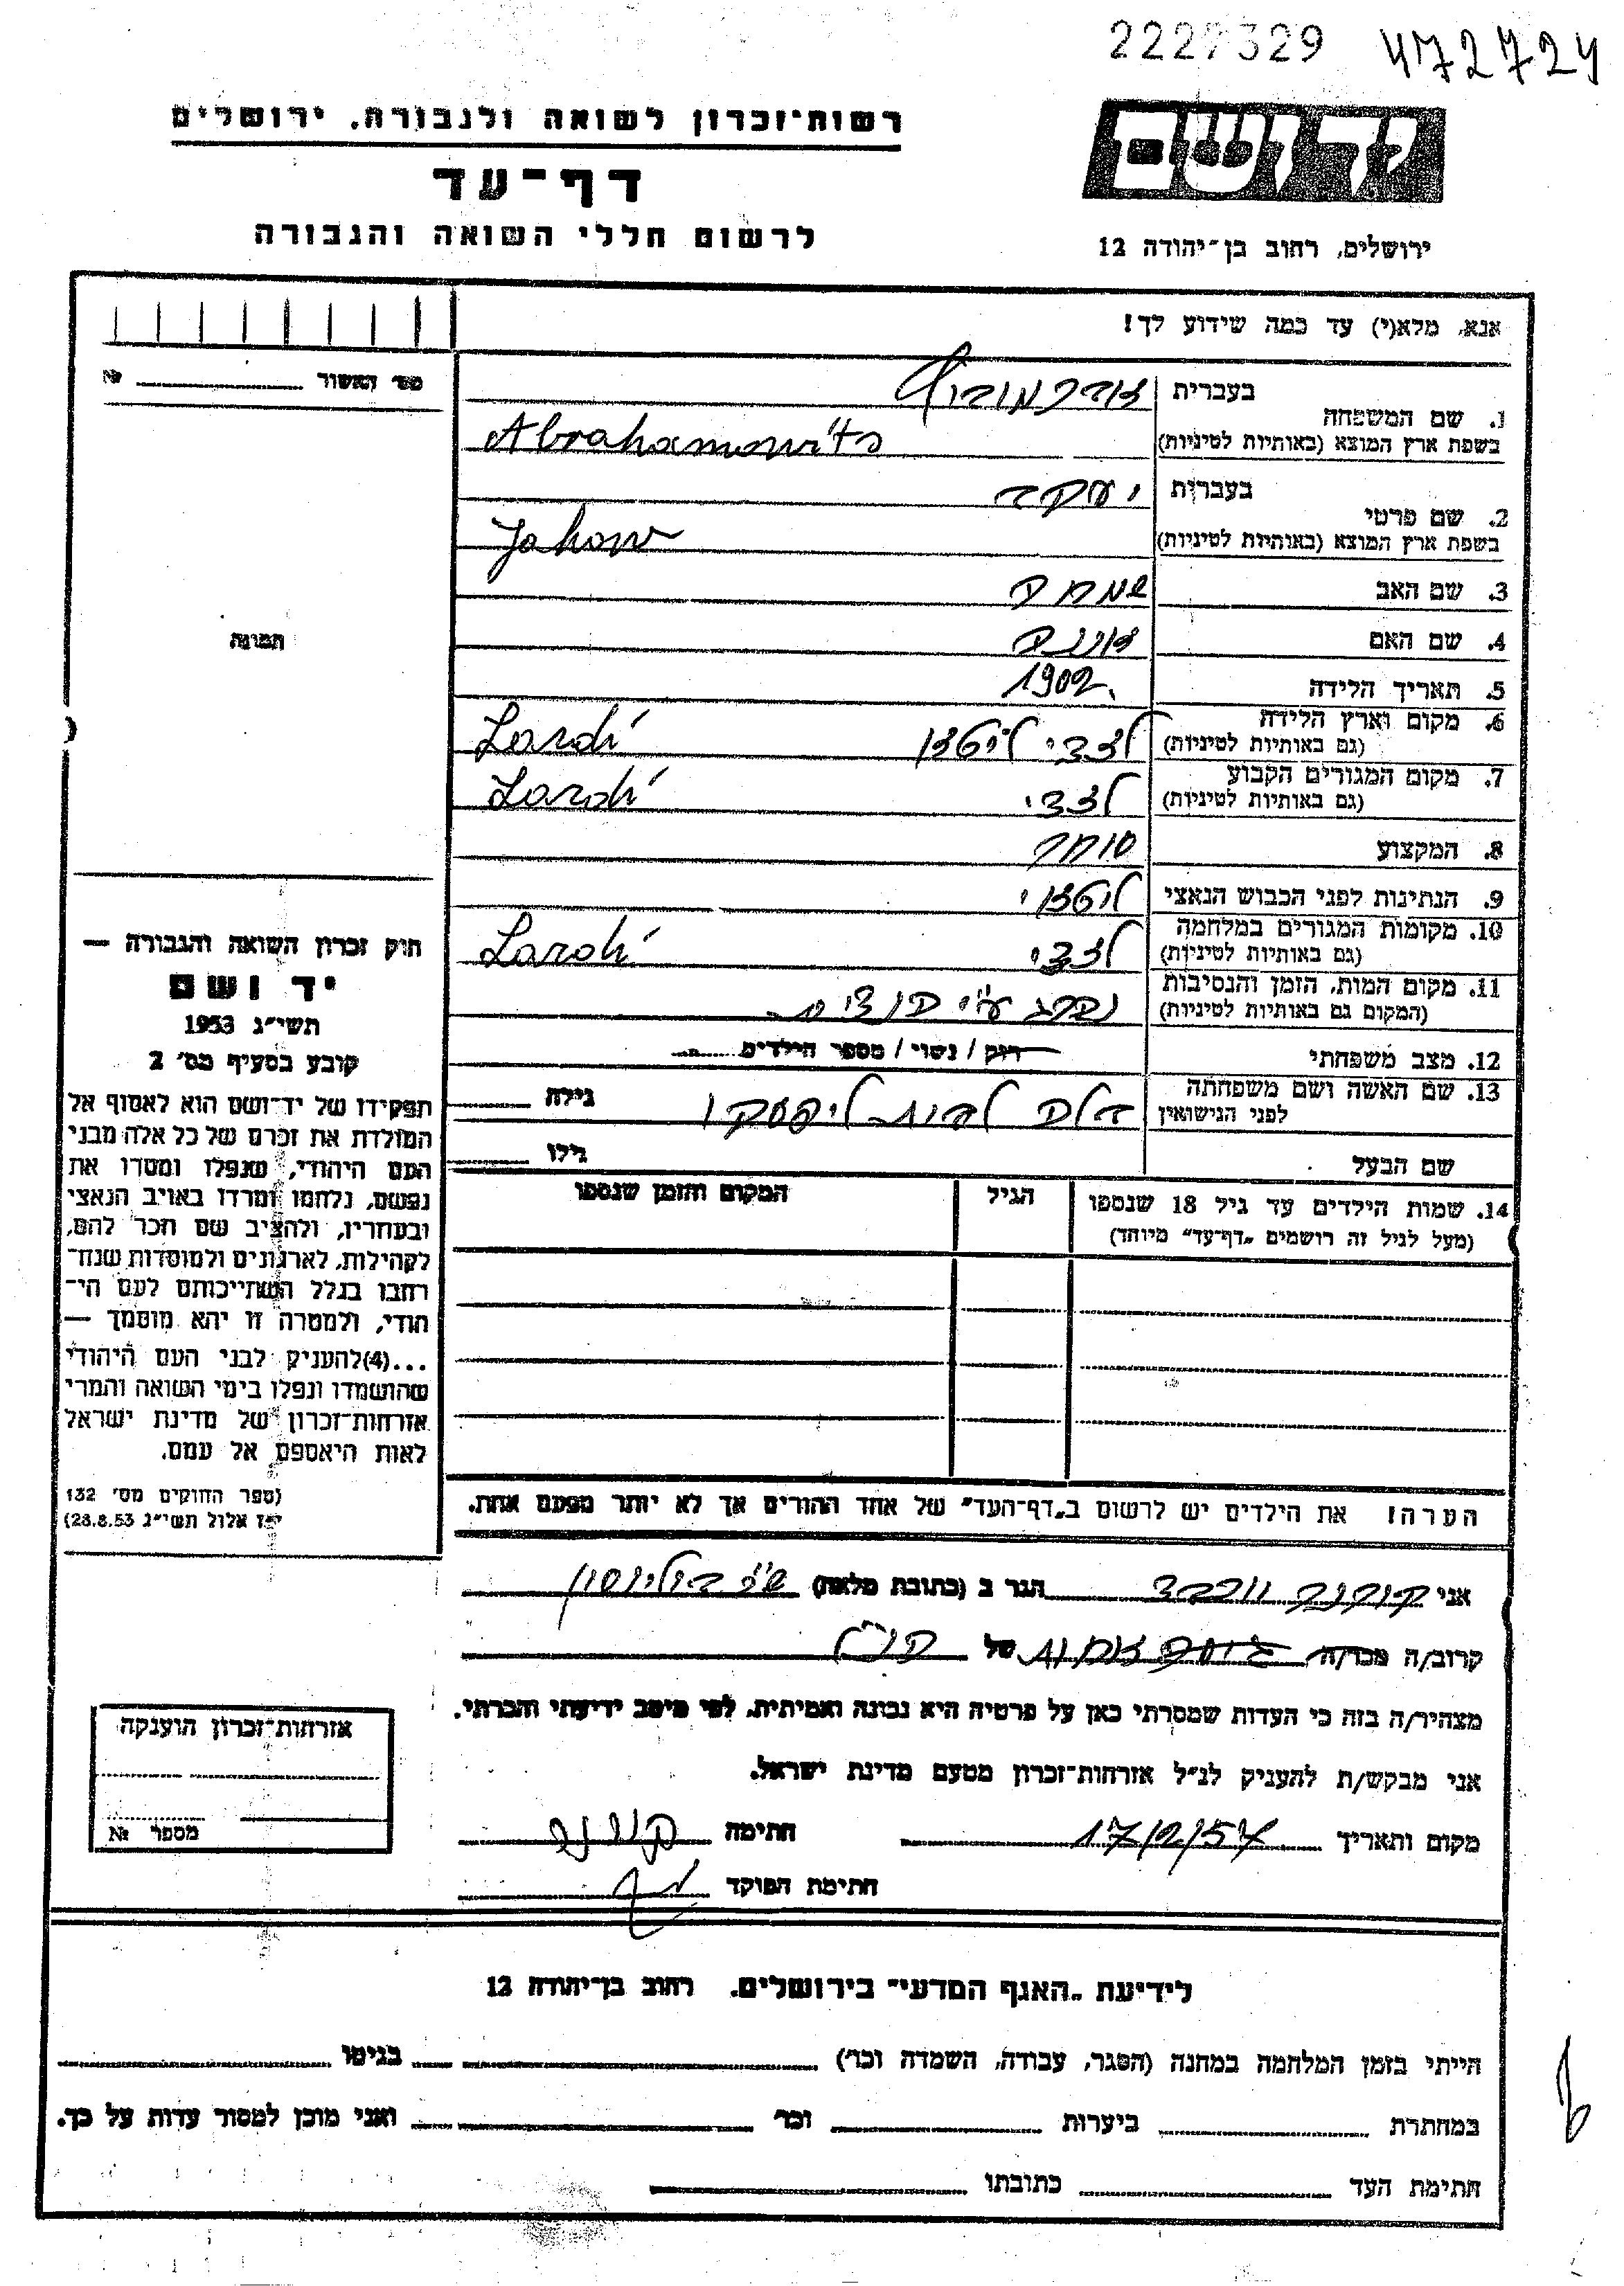 2227329 472724
יד ושם
רשות־זכרון לשואה ולגבורה, ירושלים
דף־עד
לרשום חללי השואה והגבורה
ירושלים, רחוב בן־יהודה 12
אנא, מלא(י) עד כמה שידוע לך!
מס׳ האשור № 
1. שם המשפחה
בעברית אברמוביץ
בשפת ארץ המוצא (באותיות לטיניות) Abrahamowits
2. שם פרטי
בעברית יעקב
בשפת ארץ המוצא (באותיות לטיניות) Jakow
3. שם האב שמחה
4. שם האם
5. תאריך הלידה 1902
6. מקום וארץ הלידה
(גם באותיות לטיניות) לאזדי ליטאן Lazdi
7. מקום המגורים הקבוע
(גם באותיות לטיניות) לאזדי Lazdi
8. המקצוע סוחר
9. הנתינות לפני הכבוש הנאצי ליטאני
10. מקומות המגורים במלחמה
(גם באותיות לטיניות) לאזדי Lazdi
11. מקום המות, הזמן והנסיבות
(המקום גם באותיות לטיניות) נהרג ע״י הנאצים
12. מצב משפחתי רווק / נשוי / מספר הילדים
13. שם האשה ושם משפחתה
לפני הנישואין לבית גילה
שם הבעל גילו
14. שמות הילדים עד גיל 18 שנספו
(מעל לגיל זה רושמים „דף־עד״ מיוחד)
הגיל
המקום והזמן שנספו
הערה! את הילדים יש לרשום ב„דף־העד״ של אחד ההורים אך לא יותר מפעם אחת.
תמונה
חוק זכרון השואה והגבורה —
יד ושם
תשי״ג 1953
קובע בסעיף מס׳ 2
תפקידו של יד־ושם הוא לאסוף אל
המולדת את זכרם של כל אלה מבני
העם היהודי, שנפלו ומסרו את
נפשם, נלחמו ומרדו באויב הנאצי
ובעוזריו, ולהציב שם וזכר להם,
לקהילות, לארגונים ולמוסדות שנח־
רבו בגלל השתייכותם לעם הי־
הודי, ולמטרה זו יהא מוסמך —
...(4)להעניק לבני העם היהודי
שהושמדו ונפלו בימי השואה והמרי
אזרחות־זכרון של מדינת ישראל
לאות היאספם אל עמם.
(ספר החוקים מס׳ 132
י״ז אלול תשי״ג 28.8.53)
אני הגר ב (כתובת מלאה)
קרוב/ה מכר/ה של הנ״ל
מצהיר/ה בזה כי העדות שמסרתי כאן על פרטיה היא נכונה ואמיתית, לפי מיטב ידיעתי והכרתי.
אני מבקש/ת להעניק לנ״ל אזרחות־זכרון מטעם מדינת ישראל.
מקום ותאריך 17/2/57 חתימה
חתימת הפוקד
אזרחות־זכרון הוענקה
מספר №
לידיעת „האגף המדעי״ בירושלים, רחוב בן־יהודה 12
הייתי בזמן המלחמה במחנה (הסגר, עבודה, השמדה וכו׳) בגיטו
במחתרת ביערות וכו׳ ואני מוכן למסור עדות על כך.
חתימת העד כתובתו